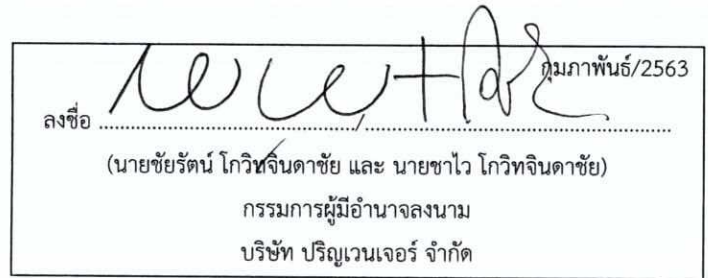 กุมภาพันธ์/2563
ลงชื่อ ............................................/............................................
(นายชัยรัตน์ โกวิทจินดาชัย และ นายชาไว โกวิทจินดาชัย)
กรรมการผู้มีอำนาจลงนาม
บริษัท ปริญเวนเจอร์ จำกัด